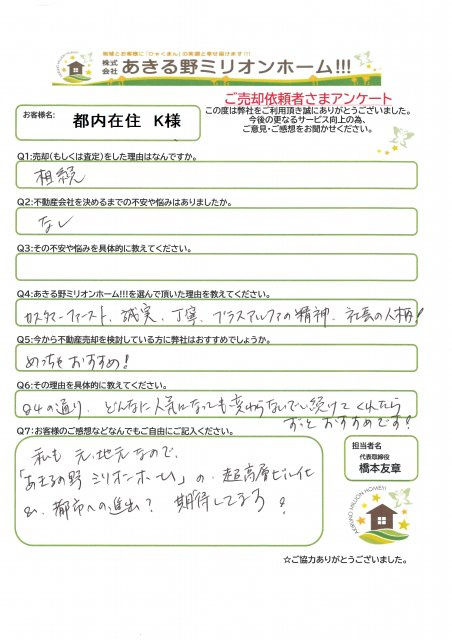 地域とお客様に「ひゃくまん」の笑顔と幸せ届けます!!
株式会社 あきる野ミリオンホーム!!!
ご売却依頼者さまアンケート
この度は弊社をご利用頂き誠にありがとうございました。
今後の更なるサービス向上の為、
ご意見・ご感想をお聞かせください。
お客様名: 都内在住 K様
Q1:売却(もしくは査定)をした理由はなんですか。
相続
Q2:不動産会社を決めるまでの不安や悩みはありましたか。
なし
Q3:その不安や悩みを具体的に教えてください。
Q4:あきる野ミリオンホーム!!!を選んで頂いた理由を教えてください。
カスタマーファースト、誠実、丁寧、プラスアルファの精神、社長の人柄!
Q5:今から不動産売却を検討している方に弊社はおすすめでしょうか。
めっちゃおすすめ!
Q6:その理由を具体的に教えてください。
Q4の通り、どんなに人気になっても変わらないでい続けてくれたら
ずっとおすすめです!
Q7:お客様のご感想などなんでもご自由にご記入ください。
私も元、地元なので、
「あきるの野ミリオンホーム」の、超高層ビル化
&、都市への進出? 期待してます!
担当者名
代表取締役
橋本友章
AKIRUNO MILLION HOME!!!
☆ご協力ありがとうございました。